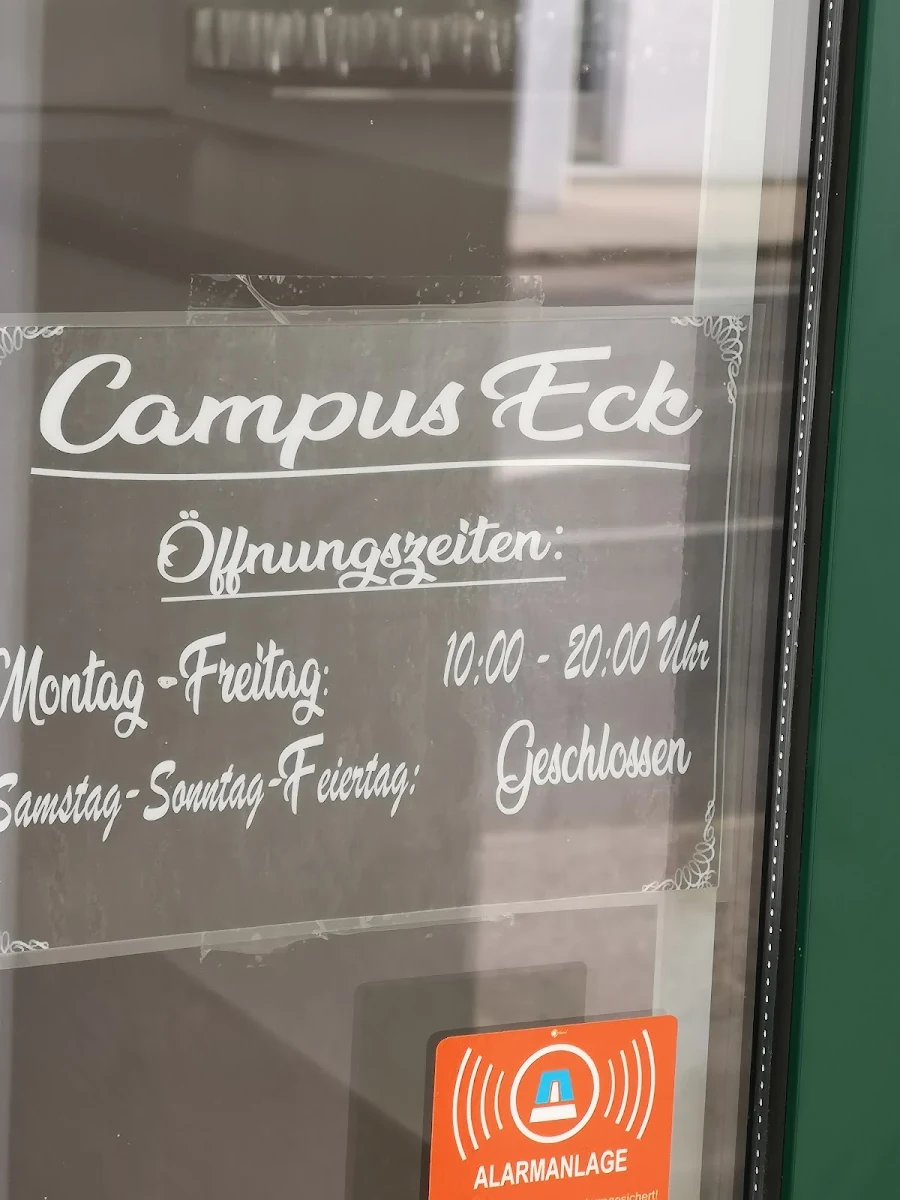 Campus Eck
Öffnungszeiten:
Montag - Freitag: 10:00 - 20:00 Uhr
Samstag - Sonntag - Feiertag: Geschlossen
ALARMANLAGE